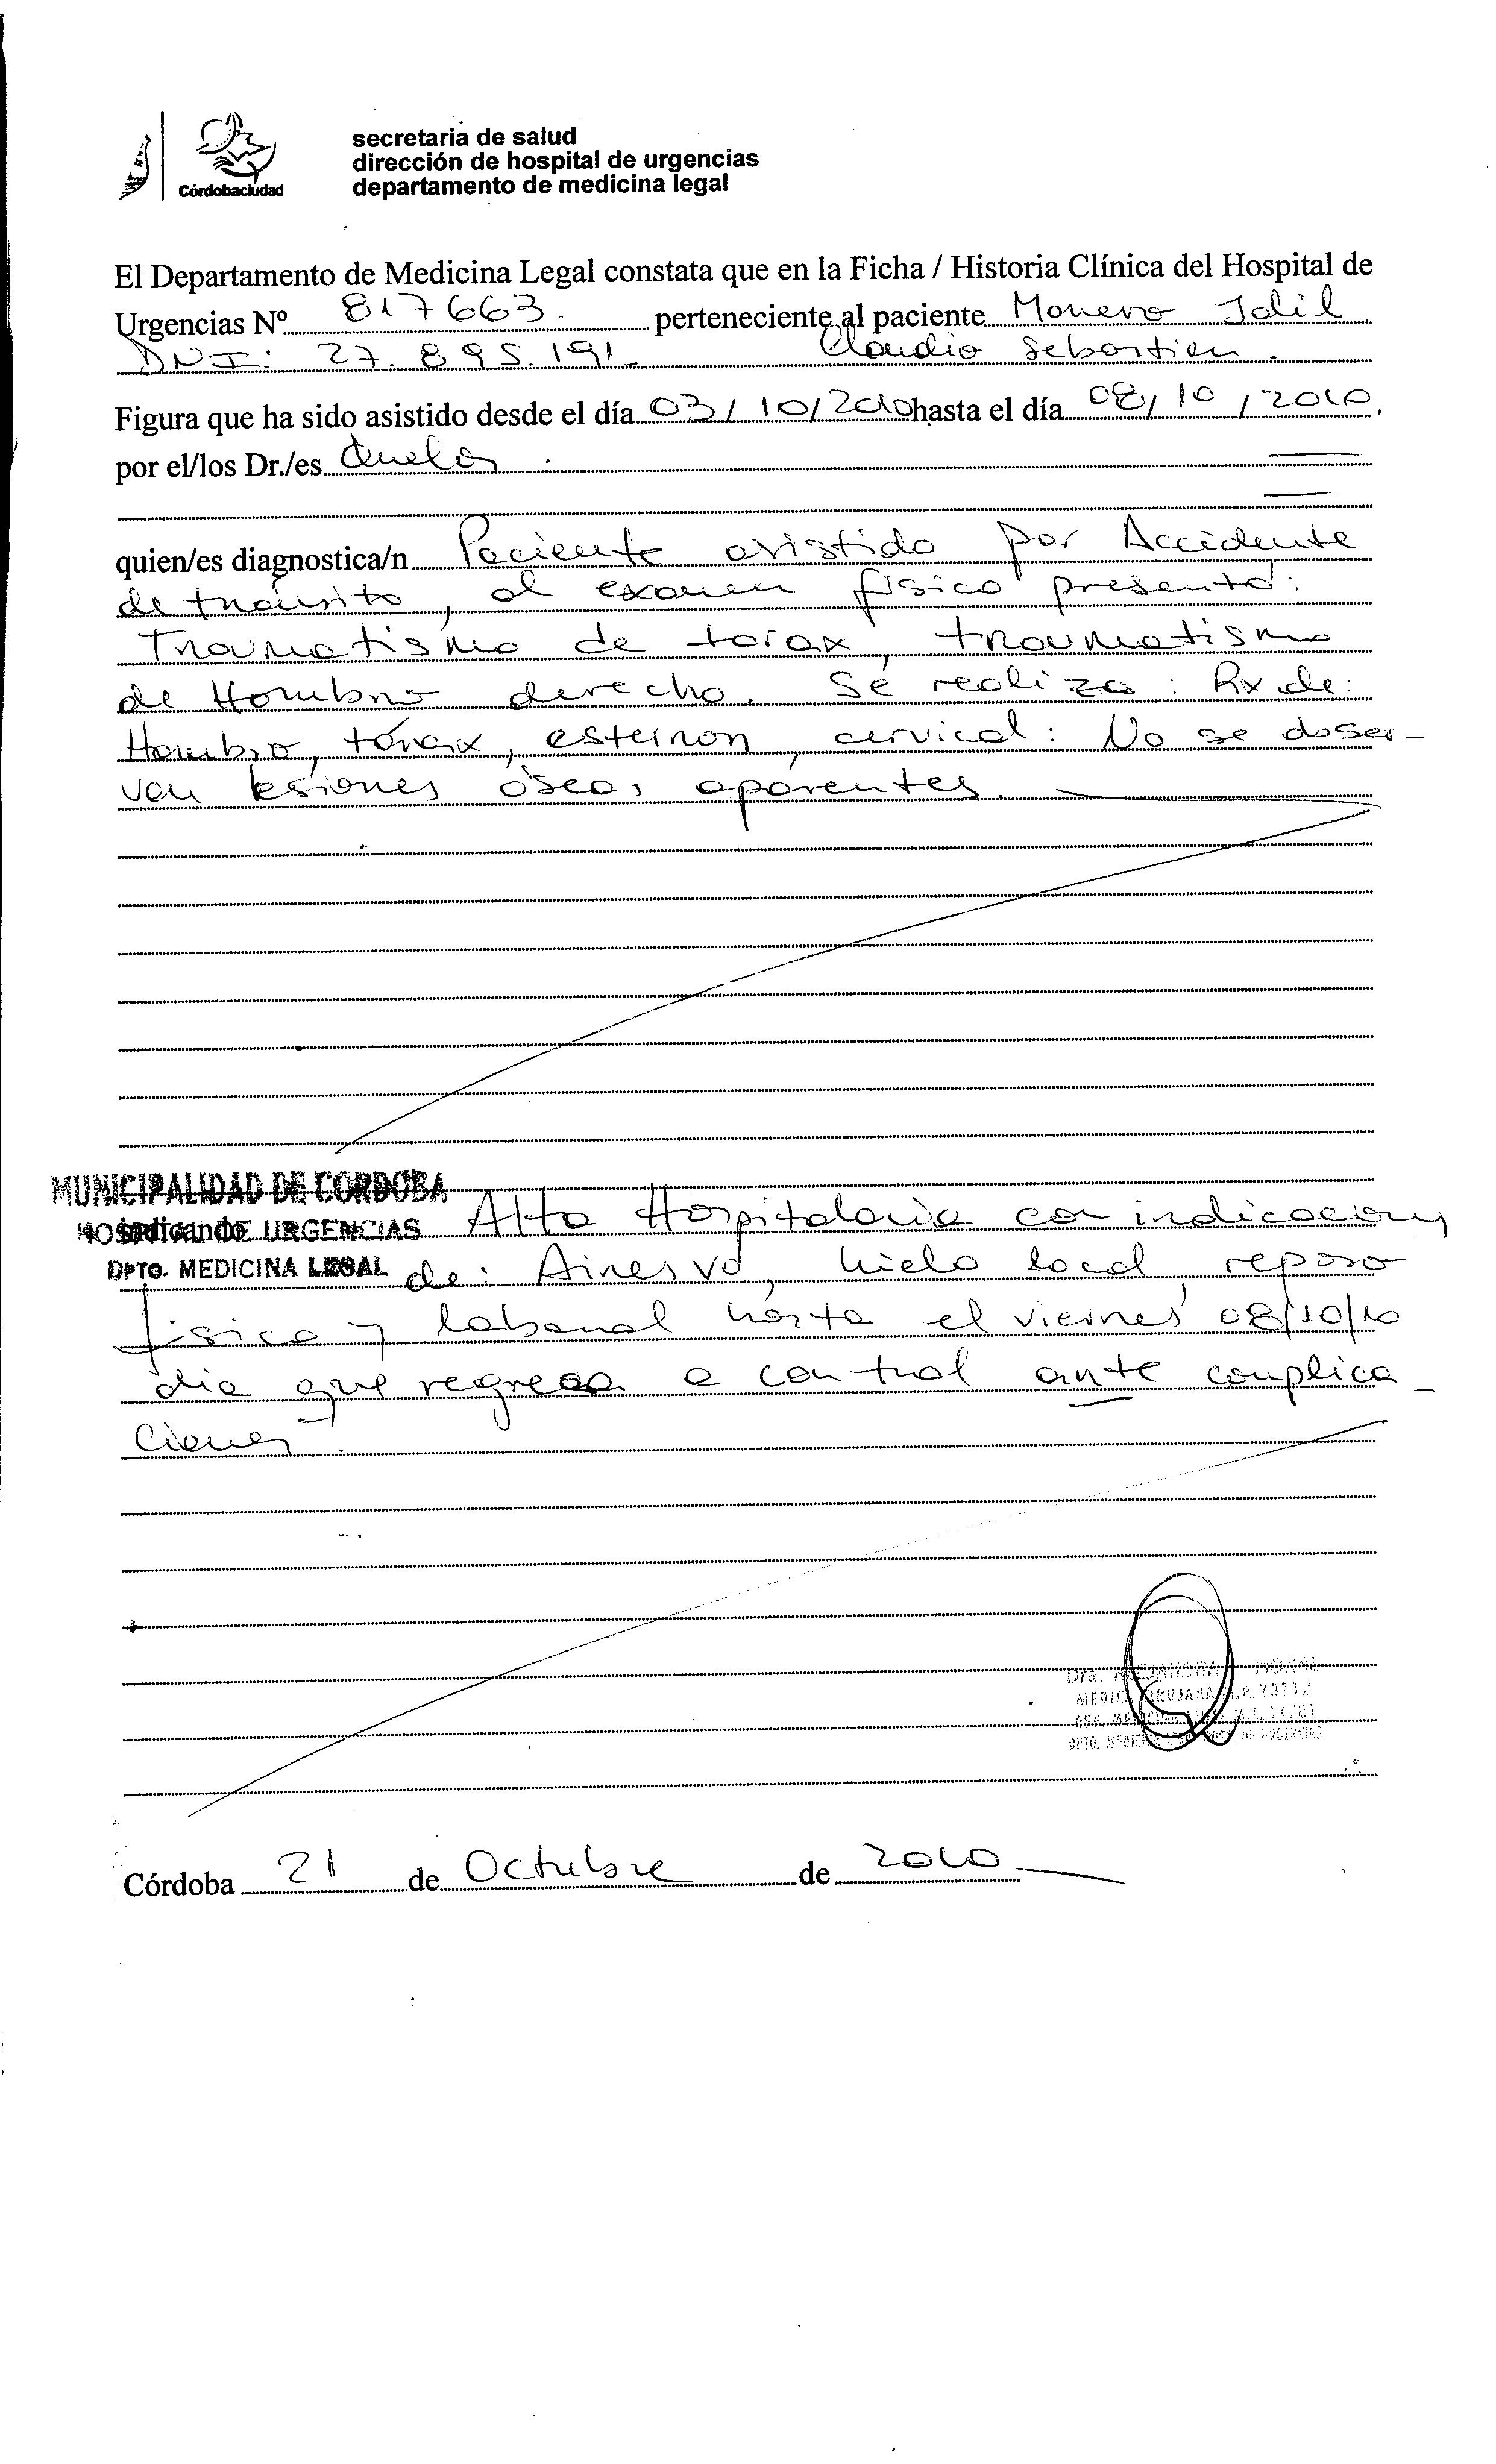 Córdobaciudad
secretaria de salud
dirección de hospital de urgencias
departamento de medicina legal
El Departamento de Medicina Legal constata que en la Ficha / Historia Clínica del Hospital de
Urgencias Nº 817663. perteneciente al paciente Moreno Jalil
DNI: 27.895.191 Claudio Sebastian.
Figura que ha sido asistido desde el día 03/10/2010 hasta el día 08/10/2010.
por el/los Dr./es
quien/es diagnostica/n Paciente asistido por Accidente
de tránsito, al examen físico presenta:
Traumatismo de torax, traumatismo
de Hombro derecho. Se realiza: Rx de:
Hombro, tórax, esternon, cervical: No se obser-
van lesiones óseas aparentes.
MUNICIPALIDAD DE CORDOBA
HOSPITAL DE URGENCIAS
indicando Alta Hospitalaria con indicaciones
DPTO. MEDICINA LEGAL
de: Aines vo, hielo local, reposo
físico y laboral hasta el viernes 08/10/10
dia que regresa a control ante complica-
ciones.
Córdoba 21 de Octubre de 2010